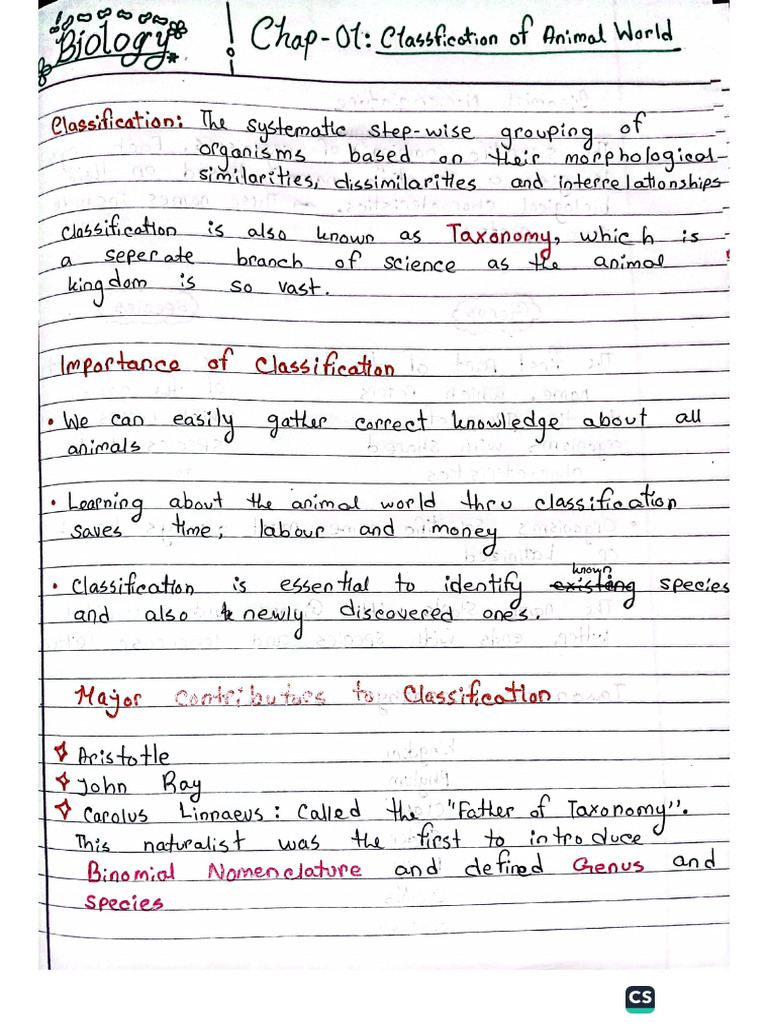 Biology ! Chap-01: Classfication of Animal World
Classification: The systematic step-wise grouping of
organisms based on their morphological
similarities, dissimilarities and interrelationships
Classification is also known as Taxonomy, which is
a seperate branch of science as the animal
kingdom is so vast.
Importance of Classification
• We can easily gather correct knowledge about all
animals
• Learning about the animal world thru classification
saves time, labour and money
• Classification is essential to identify existing known species
and also newly discovered ones.
Major contributors to Classification
Aristotle
John Ray
Carolus Linnaeus: Called the "Father of Taxonomy".
This naturalist was the first to introduce
Binomial Nomenclature and defined Genus and
species
CS